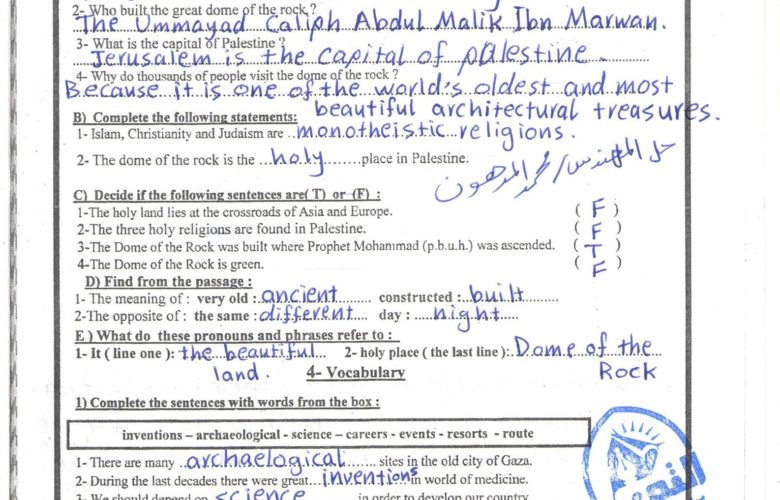 2- Who built the great dome of the rock ?
The Ummayad Caliph Abdul Malik Ibn Marwan.
3- What is the capital of Palestine ?
Jerusalem is the capital of palestine.
4- Why do thousands of people visit the dome of the rock ?
Because it is one of the world's oldest and most
beautiful architectural treasures.
B) Complete the following statements:
1- Islam, Christianity and Judaism are ..monotheistic religions.
2- The dome of the rock is the ..holy.......place in Palestine.
حل المهندس / محمد المدهون
C) Decide if the following sentences are( T) or (F) :
1-The holy land lies at the crossroads of Asia and Europe. ( F )
2-The three holy religions are found in Palestine. ( F )
3-The Dome of the Rock was built where Prophet Mohammad (p.b.u.h.) was ascended. ( T )
4-The Dome of the Rock is green. ( F )
D) Find from the passage :
1- The meaning of : very old :.ancient.......... constructed :..built.........
2-The opposite of : the same :different....... day : .....night.......
E ) What do these pronouns and phrases refer to :
1- It ( line one ): the beautiful... 2- holy place ( the last line):.Dome of the
land. 4- Vocabulary Rock
1) Complete the sentences with words from the box :
inventions – archaeological - science – careers - events - resorts - route
1- There are many ..archaelogical....... sites in the old city of Gaza.
2- During the last decades there were great...inventions in world of medicine.
3- We should depend on science in order to develop our country